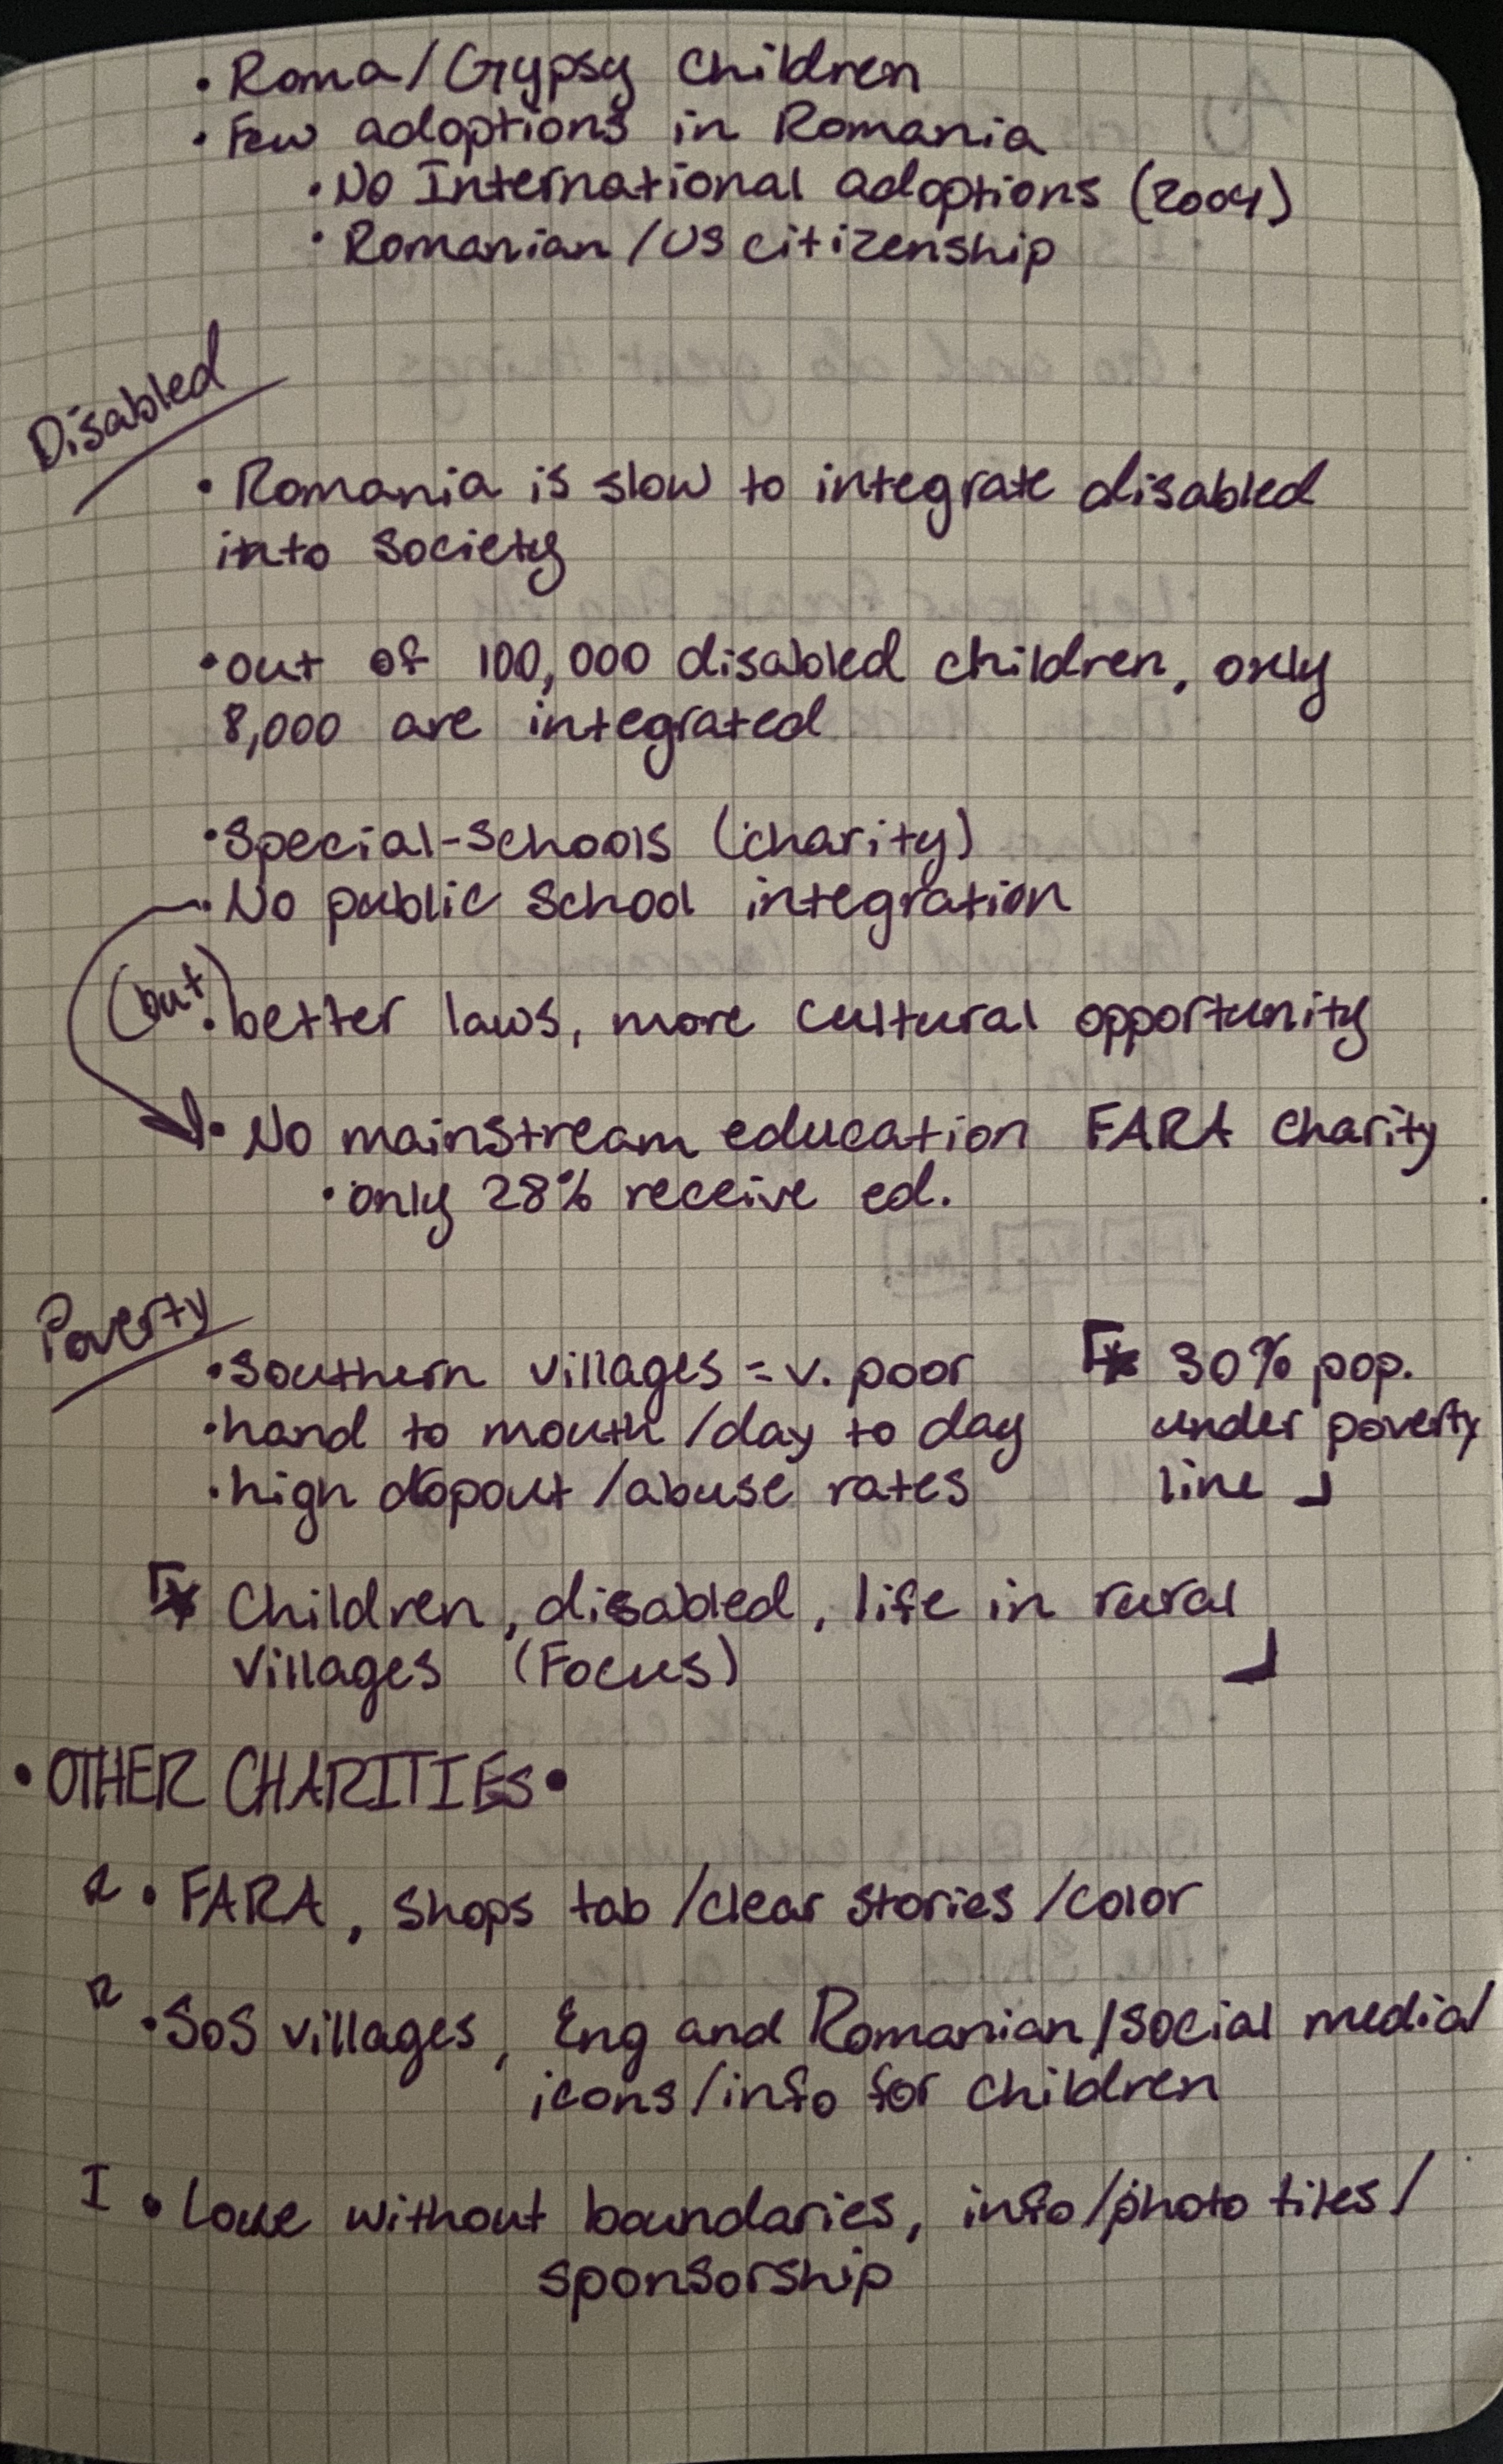 • Roma/Gypsy children
• Few adoptions in Romania
• No International adoptions (2004)
• Romanian/US citizenship
Disabled
• Romania is slow to integrate disabled
into society
• out of 100,000 disabled children, only
8,000 are integrated
• Special-schools (charity)
• No public school integration
(but)
• better laws, more cultural opportunity
• No mainstream education FARA charity
• only 28% receive ed.
Poverty
• Southern villages = v. poor
• hand to mouth/day to day
• high dropout/abuse rates
* 30% pop.
under poverty
line
* Children, disabled, life in rural
villages (Focus)
• OTHER CHARITIES •
R • FARA, shops tab/clear stories/color
R • SOS villages, Eng and Romanian/social media/
icons/info for children
I • Love without boundaries, info/photo tiles/
sponsorship